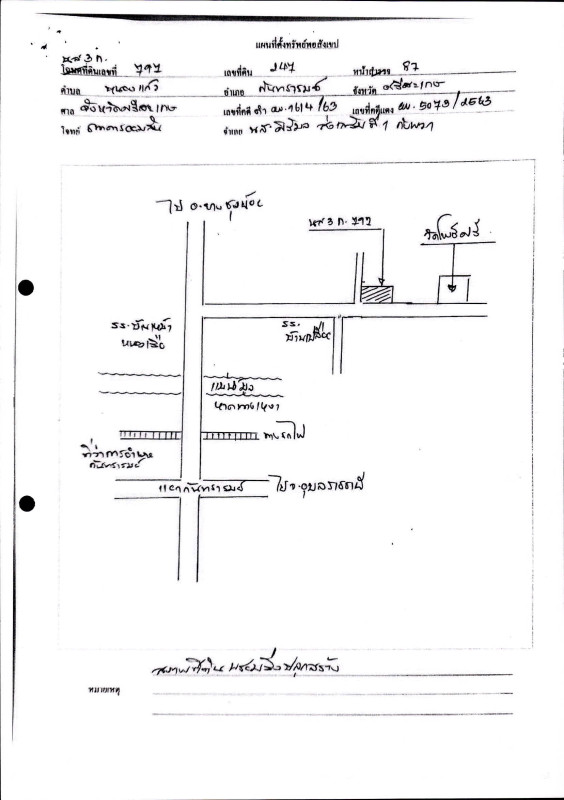 แผนที่ตั้งทรัพย์พอสังเขป
นส 3 ก.
โฉนดที่ดินเลขที่ 797 เลขที่ดิน 247 หน้าสำรวจ 87
ตำบล หนองแก้ว อำเภอ กันทรารมย์ จังหวัด ศรีสะเกษ
ศาล จังหวัดศรีสะเกษ เลขที่คดีดำ ผบ.1614/63 เลขที่คดีแดง ผบ. 5079/2563
โจทก์ จำเลย ที่ 1 กับพวก
ไป อ.ยางชุมน้อย
นส 3 ก. 797
วัดโพธิ์ศรี
รร.
รร.
แม่น้ำมูล
หาดนางเหงา
ทางรถไฟ
ที่ว่าการอำเภอ
กันทรารมย์
แยกกันทรารมย์
ไป จ.อุบลราชธานี
สภาพที่ดิน พร้อมสิ่งปลูกสร้าง
หมายเหตุ